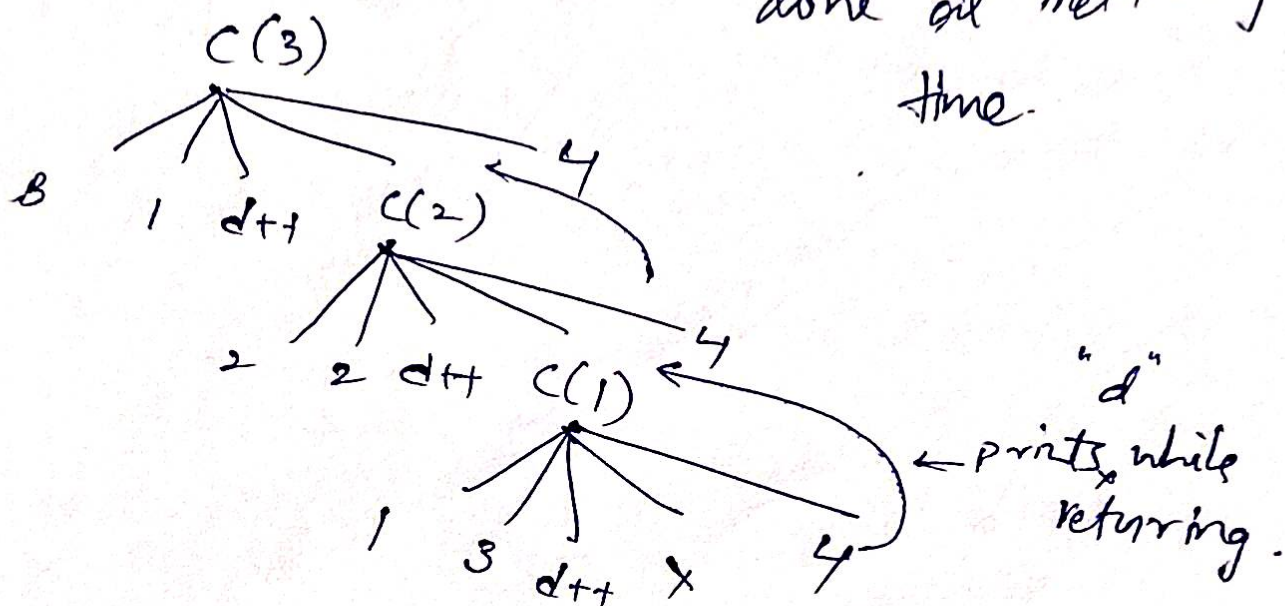 done
time.
C(3)
4
3 1 d++ C(2)
4
2 2 d++ C(1)
"d"
← prints while
returing.
1 3 d++ x 4